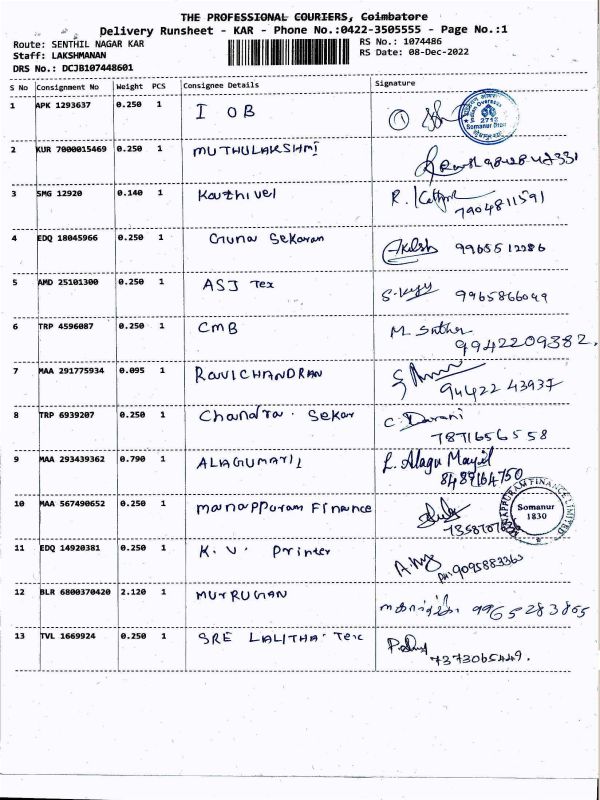 THE PROFESSIONAL COURIERS, Coimbatore
Delivery Runsheet - KAR - Phone No.:0422-3505555 - Page No.:1
Route: SENTHIL NAGAR KAR
RS No.: 1074486
Staff: LAKSHMANAN
RS Date: 08-Dec-2022
DRS No.: DCJB107448601
S No Consignment No Weight PCS Consignee Details Signature
1 APK 1293637 0.250 1 I OB ①
Indian Overseas
2712
Somanur
2 KUR 7000015469 0.250 1 MUTHULAKSHMI
3 SMG 12920 0.140 1 Kathivel R. 7904811591
4 EDQ 18045966 0.250 1 Guna Sekaran Akilsh 9965512286
5 AMD 25101300 0.250 1 ASJ Tex 9965866049
6 TRP 4596087 0.250 1 CMB M. 9942209382.
7 MAA 291775934 0.095 1 RAVICHANDRAN 94422 43937
8 TRP 6939207 0.250 1 Chandra. Sekar C. Darani
7871656558
9 MAA 293439362 0.790 1 ALAGUMAYIL L. Alagu Mayil
8489164750
10 MAA 567490652 0.250 1 manappuram Finance
MANAPPURAM FINANCE LIMITED
Somanur
1830
11 EDQ 14920381 0.250 1 K. V. Printer
PH: 9095883363
12 BLR 6800370420 2.120 1 MURUGAN 9965283865
13 TVL 1669924 0.250 1 SRE LALITHA Tex
7373065449.